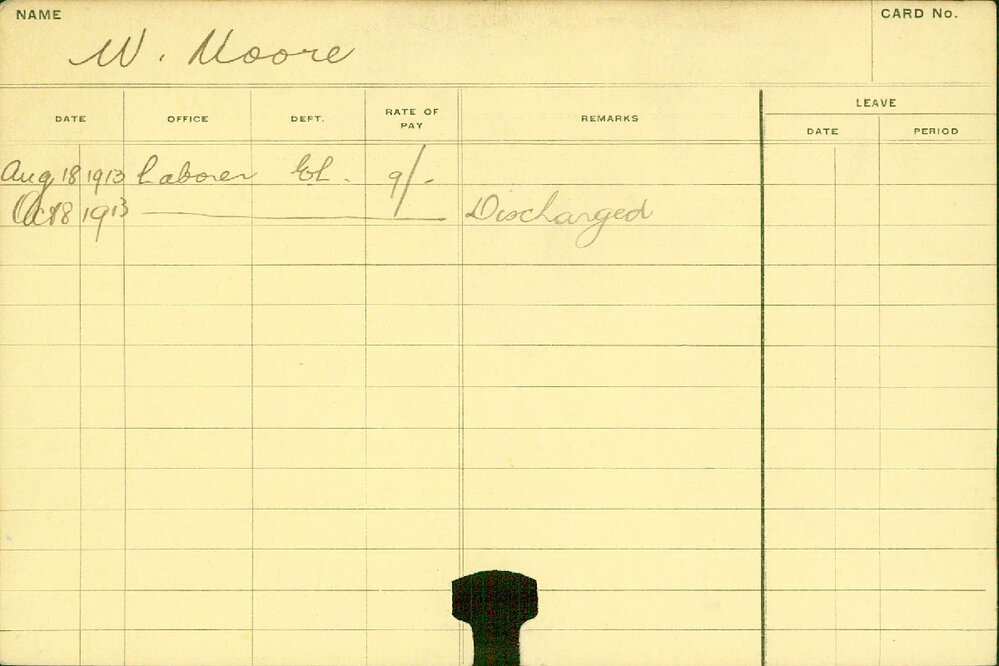 NAME
CARD No.
W. Moore
DATE OFFICE DEPT. RATE OF PAY REMARKS LEAVE
DATE PERIOD
Aug 18 1913 Laborer El. 9/-
Oct 8 1913 Discharged